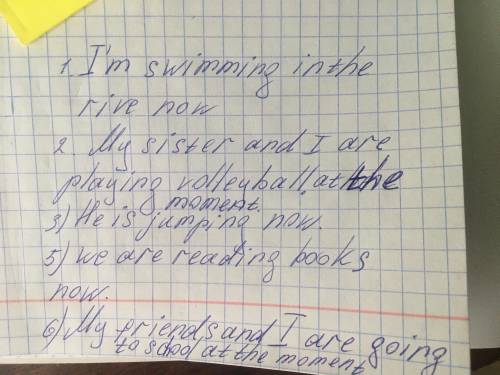 1 I'm swimming in the
rive now
2 My sister and I are
playing volleyball at the
moment.
3) He is jumping now.
5) we are reading books
now.
6) My friends and I are going
to scool at the moment